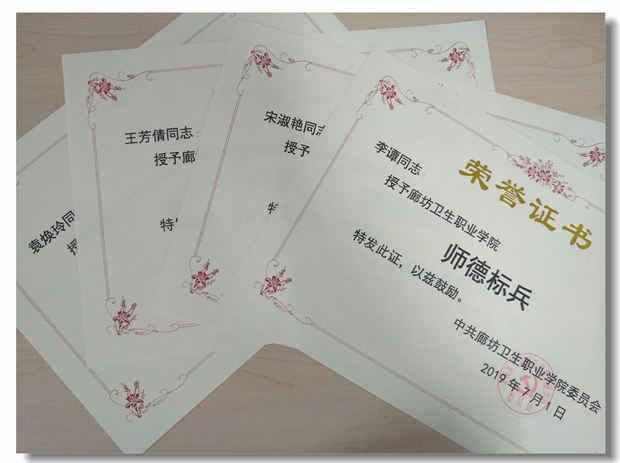 袁焕玲同
授
王芳倩同志：
授予廊
特
宋淑艳同志
授予
特
荣誉证书
李谭同志：
授予廊坊卫生职业学院
师德标兵
特发此证，以兹鼓励。
中共廊坊卫生职业学院委员会
2019年7月1日